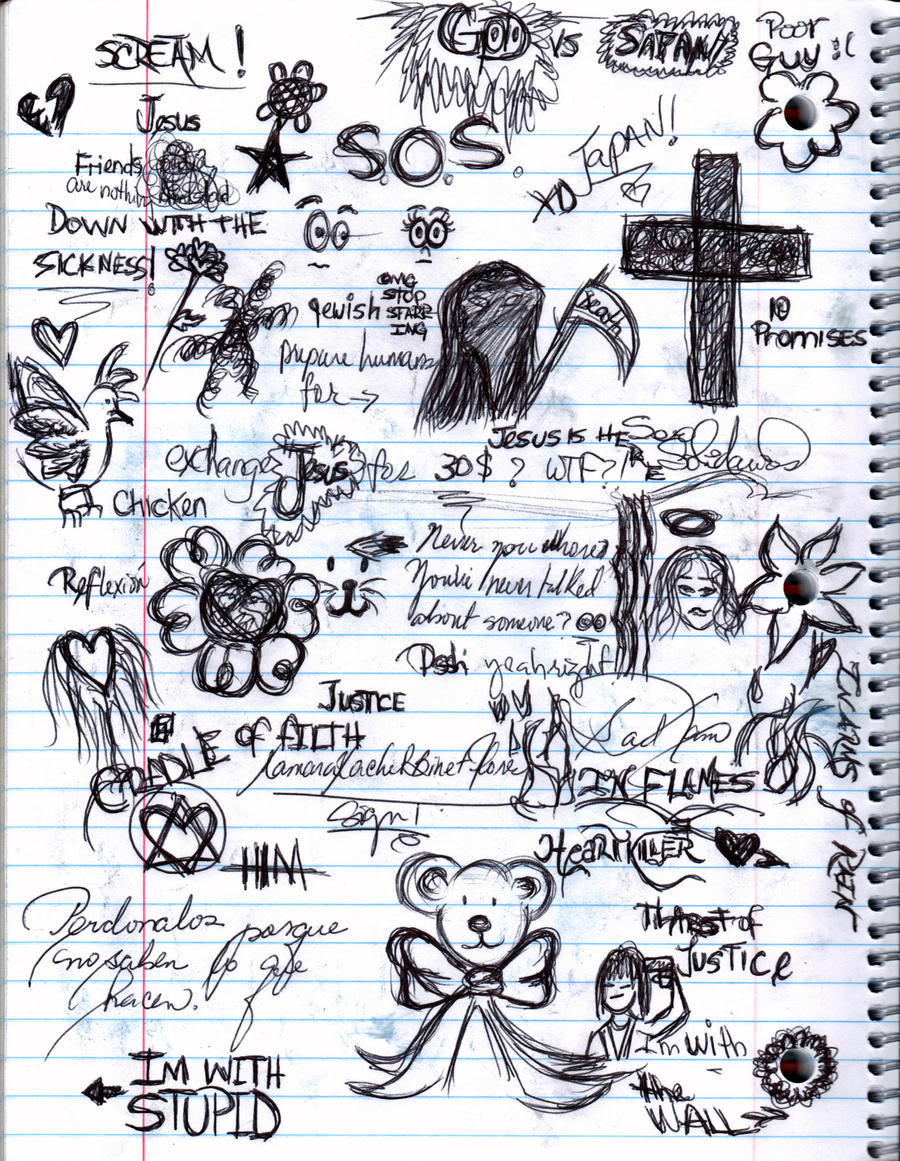 SCREAM!
GOD VS SATAN!
Poor
Guy :(
Jesus
S.O.S.
XD JAPAN!
Friends
are nothing
DOWN WITH THE
SICKNESS!
OMG
STOP
STARE
ING
jewish
prepare humans
for →
Death
10
Promises
exchange Jesus for 30$? WTF?!
JESUS IS HERE
Chicken
Reflexión
Never you
You've never talked
about someone?
Pssh yeah right
JUSTICE
CRADLE OF FILTH
Sad
IN FLAMES
ICARUS
of
Sign!
HEARTKILLER
HIM
Perdonalos porque
no saben lo que
hacen.
THIRST of
JUSTICE
I'm with
the
WALL
IM WITH
STUPID